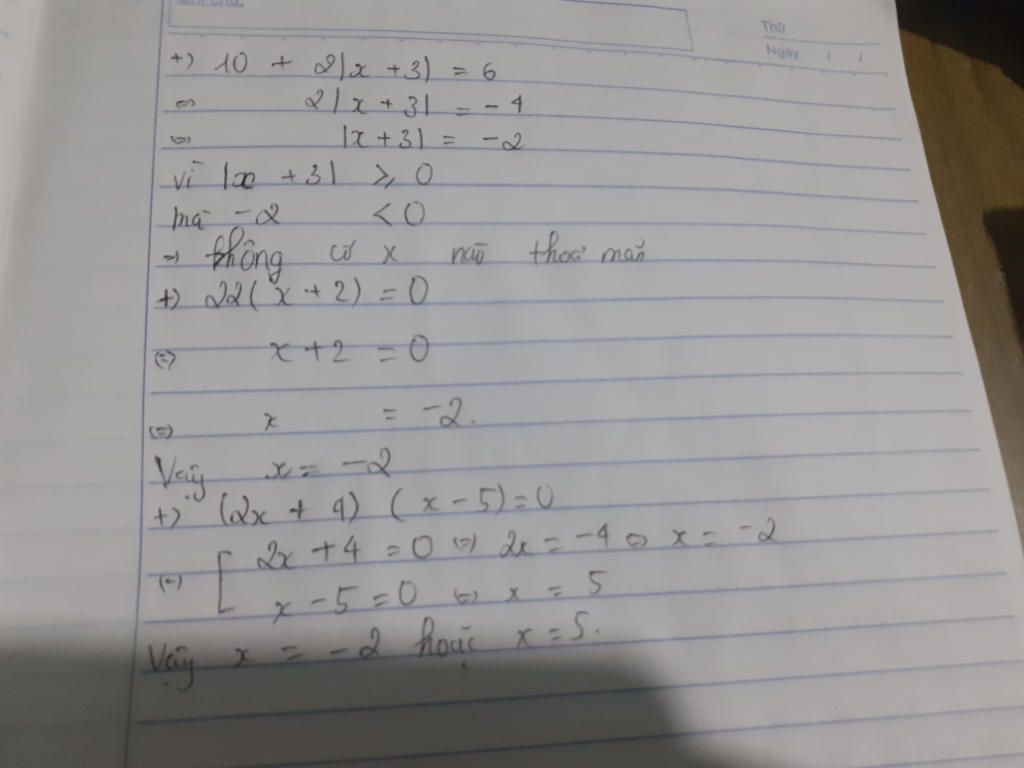 Thứ
Ngày / /
+) 10 + 2|x + 3| = 6
⇔ 2|x + 3| = -4
⇔ |x + 3| = -2
vì |x + 3| ⩾ 0
mà -2 < 0
⇒ không có x nào thoả mãn
+) 22(x + 2) = 0
⇔ x + 2 = 0
⇔ x = -2.
Vậy x = -2
+) (2x + 4) (x - 5) = 0
⇔ [ 2x + 4 = 0 ⇔ 2x = -4 ⇔ x = -2
x - 5 = 0 ⇔ x = 5
Vậy x = -2 hoặc x = 5.